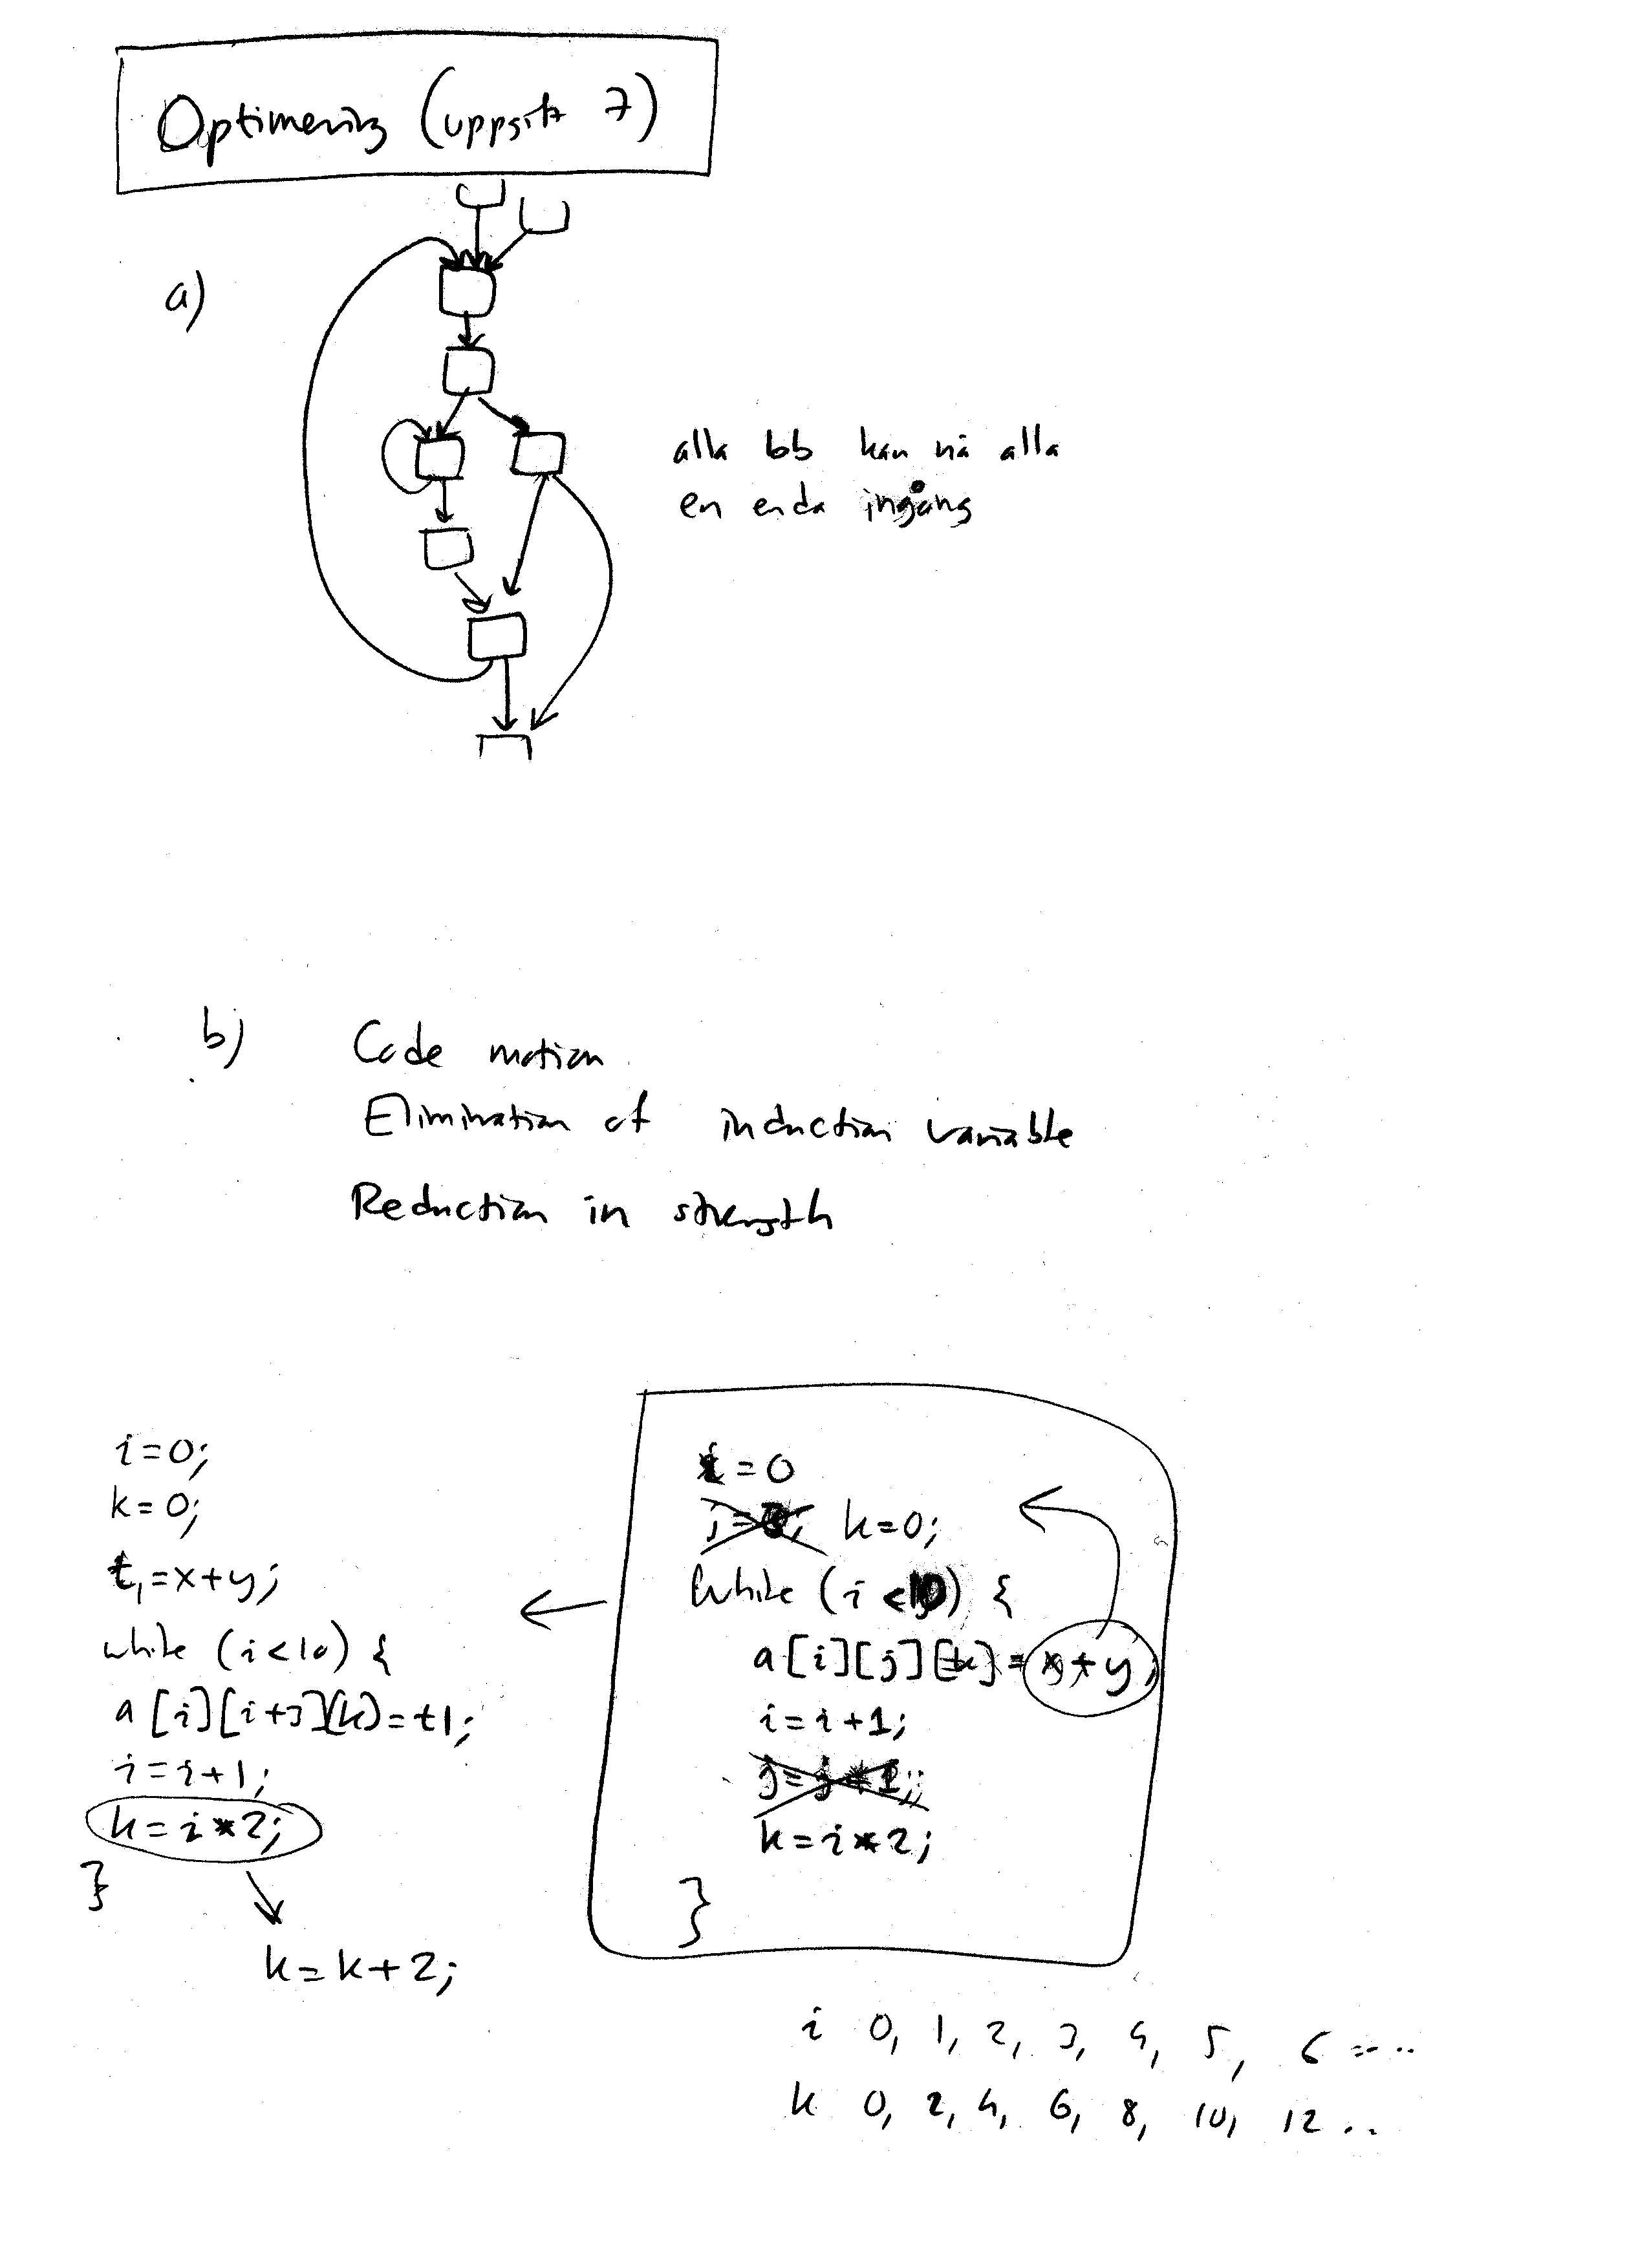 Optimering (uppgift 7)
a)
alla bb kan nå alla
en enda ingång
b) Code motion
Elimination of induction variable
Reduction in strength
i=0;
k=0;
t1=x+y;
while (i<10) {
a[i][i+3][k]=t1;
i=i+1;
k=i*2;
}
k=k+2;
i=0
j=3; k=0;
while (i<10) {
a[i][j][k]=x+y;
i=i+1;
j=j+1;
k=i*2;
}
i 0, 1, 2, 3, 4, 5, 6 ....
k 0, 2, 4, 6, 8, 10, 12 ..